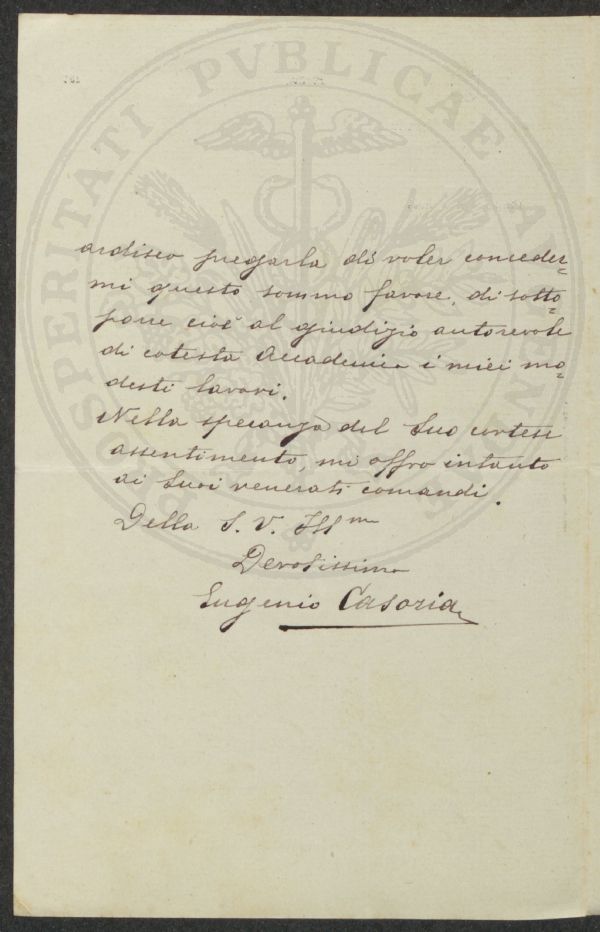 PROSPERITATI PVBLICAE AV
ardisco pregarla di voler conceder=
mi questo sommo favore, di sotto=
porre cioè al giudizio autorevole
di cotesta Accademia i miei mo=
desti lavori.
Nella speranza del Suo cortese
assentimento, mi offro intanto
ai Suoi venerati comandi.
Della S. V. Illma
Devotissimo
Eugenio Casoria